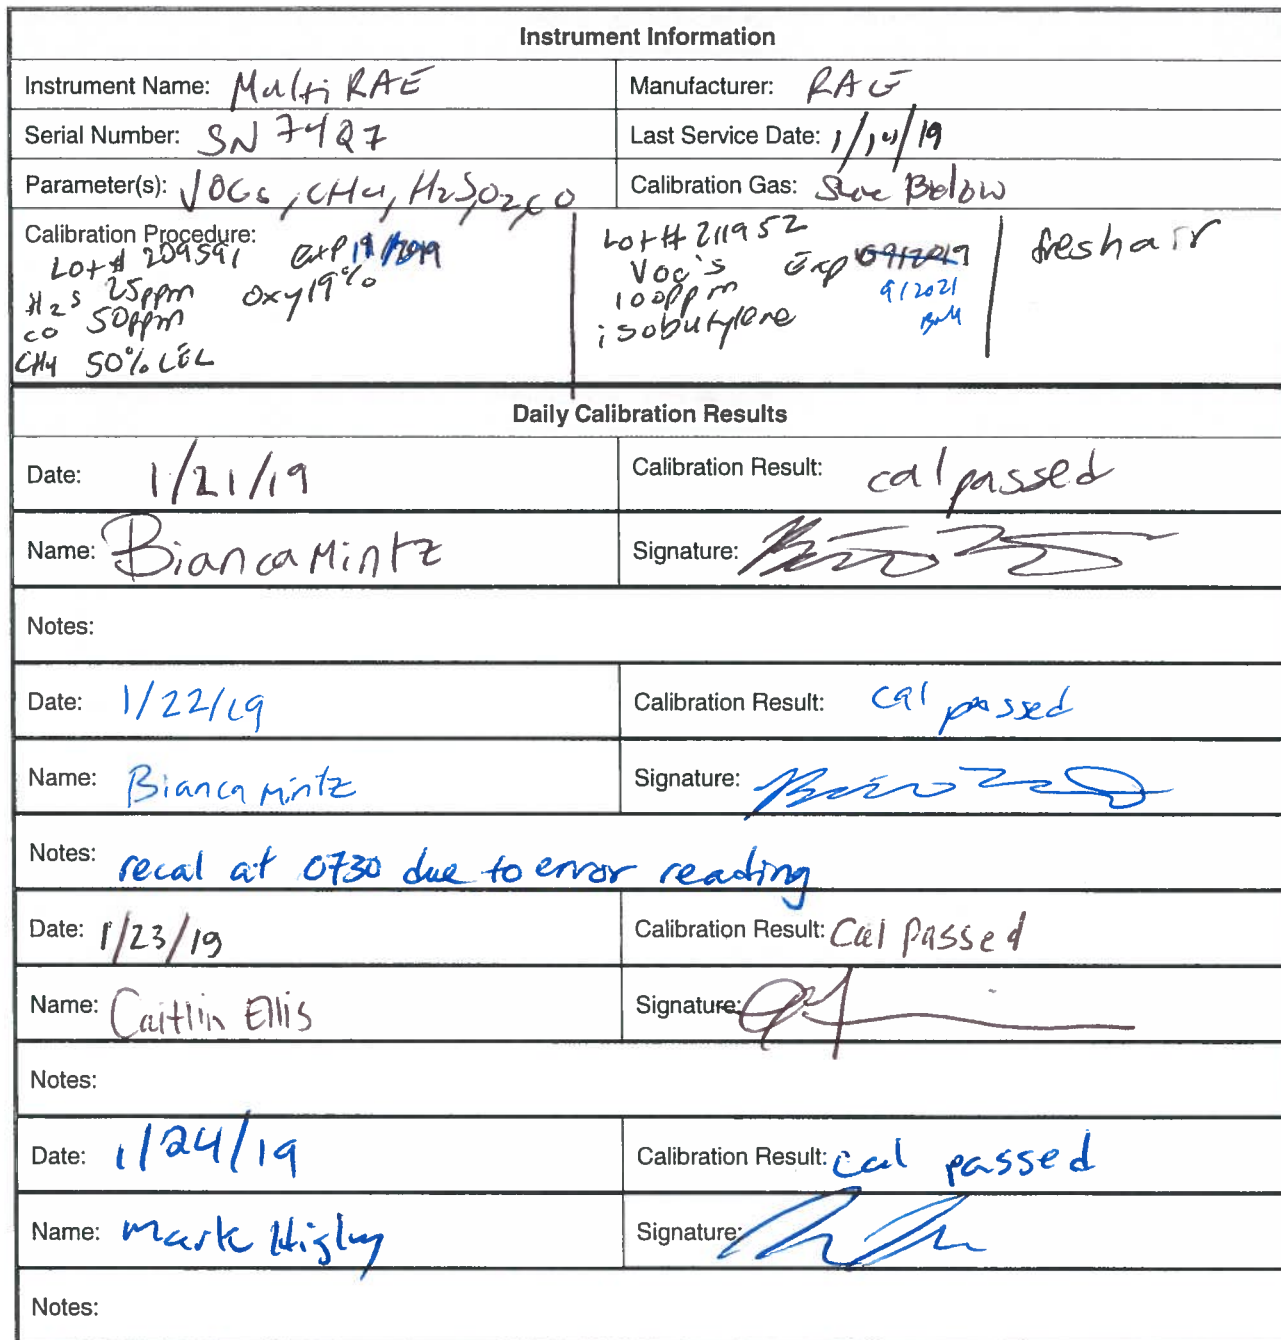 Instrument Information
Instrument Name: Multi RAE
Manufacturer: RAE
Serial Number: SN 7427
Last Service Date: 1/14/19
Parameter(s): VOCs, CH4, H2S, O2, CO
Calibration Gas: See Below
Calibration Procedure:
Lot# 209591 Exp
H2S 25ppm oxy 19%
CO 50ppm
CH4 50% LEL
Lot# 211952
VOC's Exp 09/2019
100ppm 9/2021
isobutylene BM
fresh air
Daily Calibration Results
Date: 1/21/19
Calibration Result: cal passed
Name: Bianca Mintz
Signature:
Notes:
Date: 1/22/19
Calibration Result: cal passed
Name: Bianca Mintz
Signature:
Notes: recal at 0730 due to error reading
Date: 1/23/19
Calibration Result: Cal Passed
Name: Caitlin Ellis
Signature:
Notes:
Date: 1/24/19
Calibration Result: cal passed
Name: Mark Higley
Signature:
Notes: